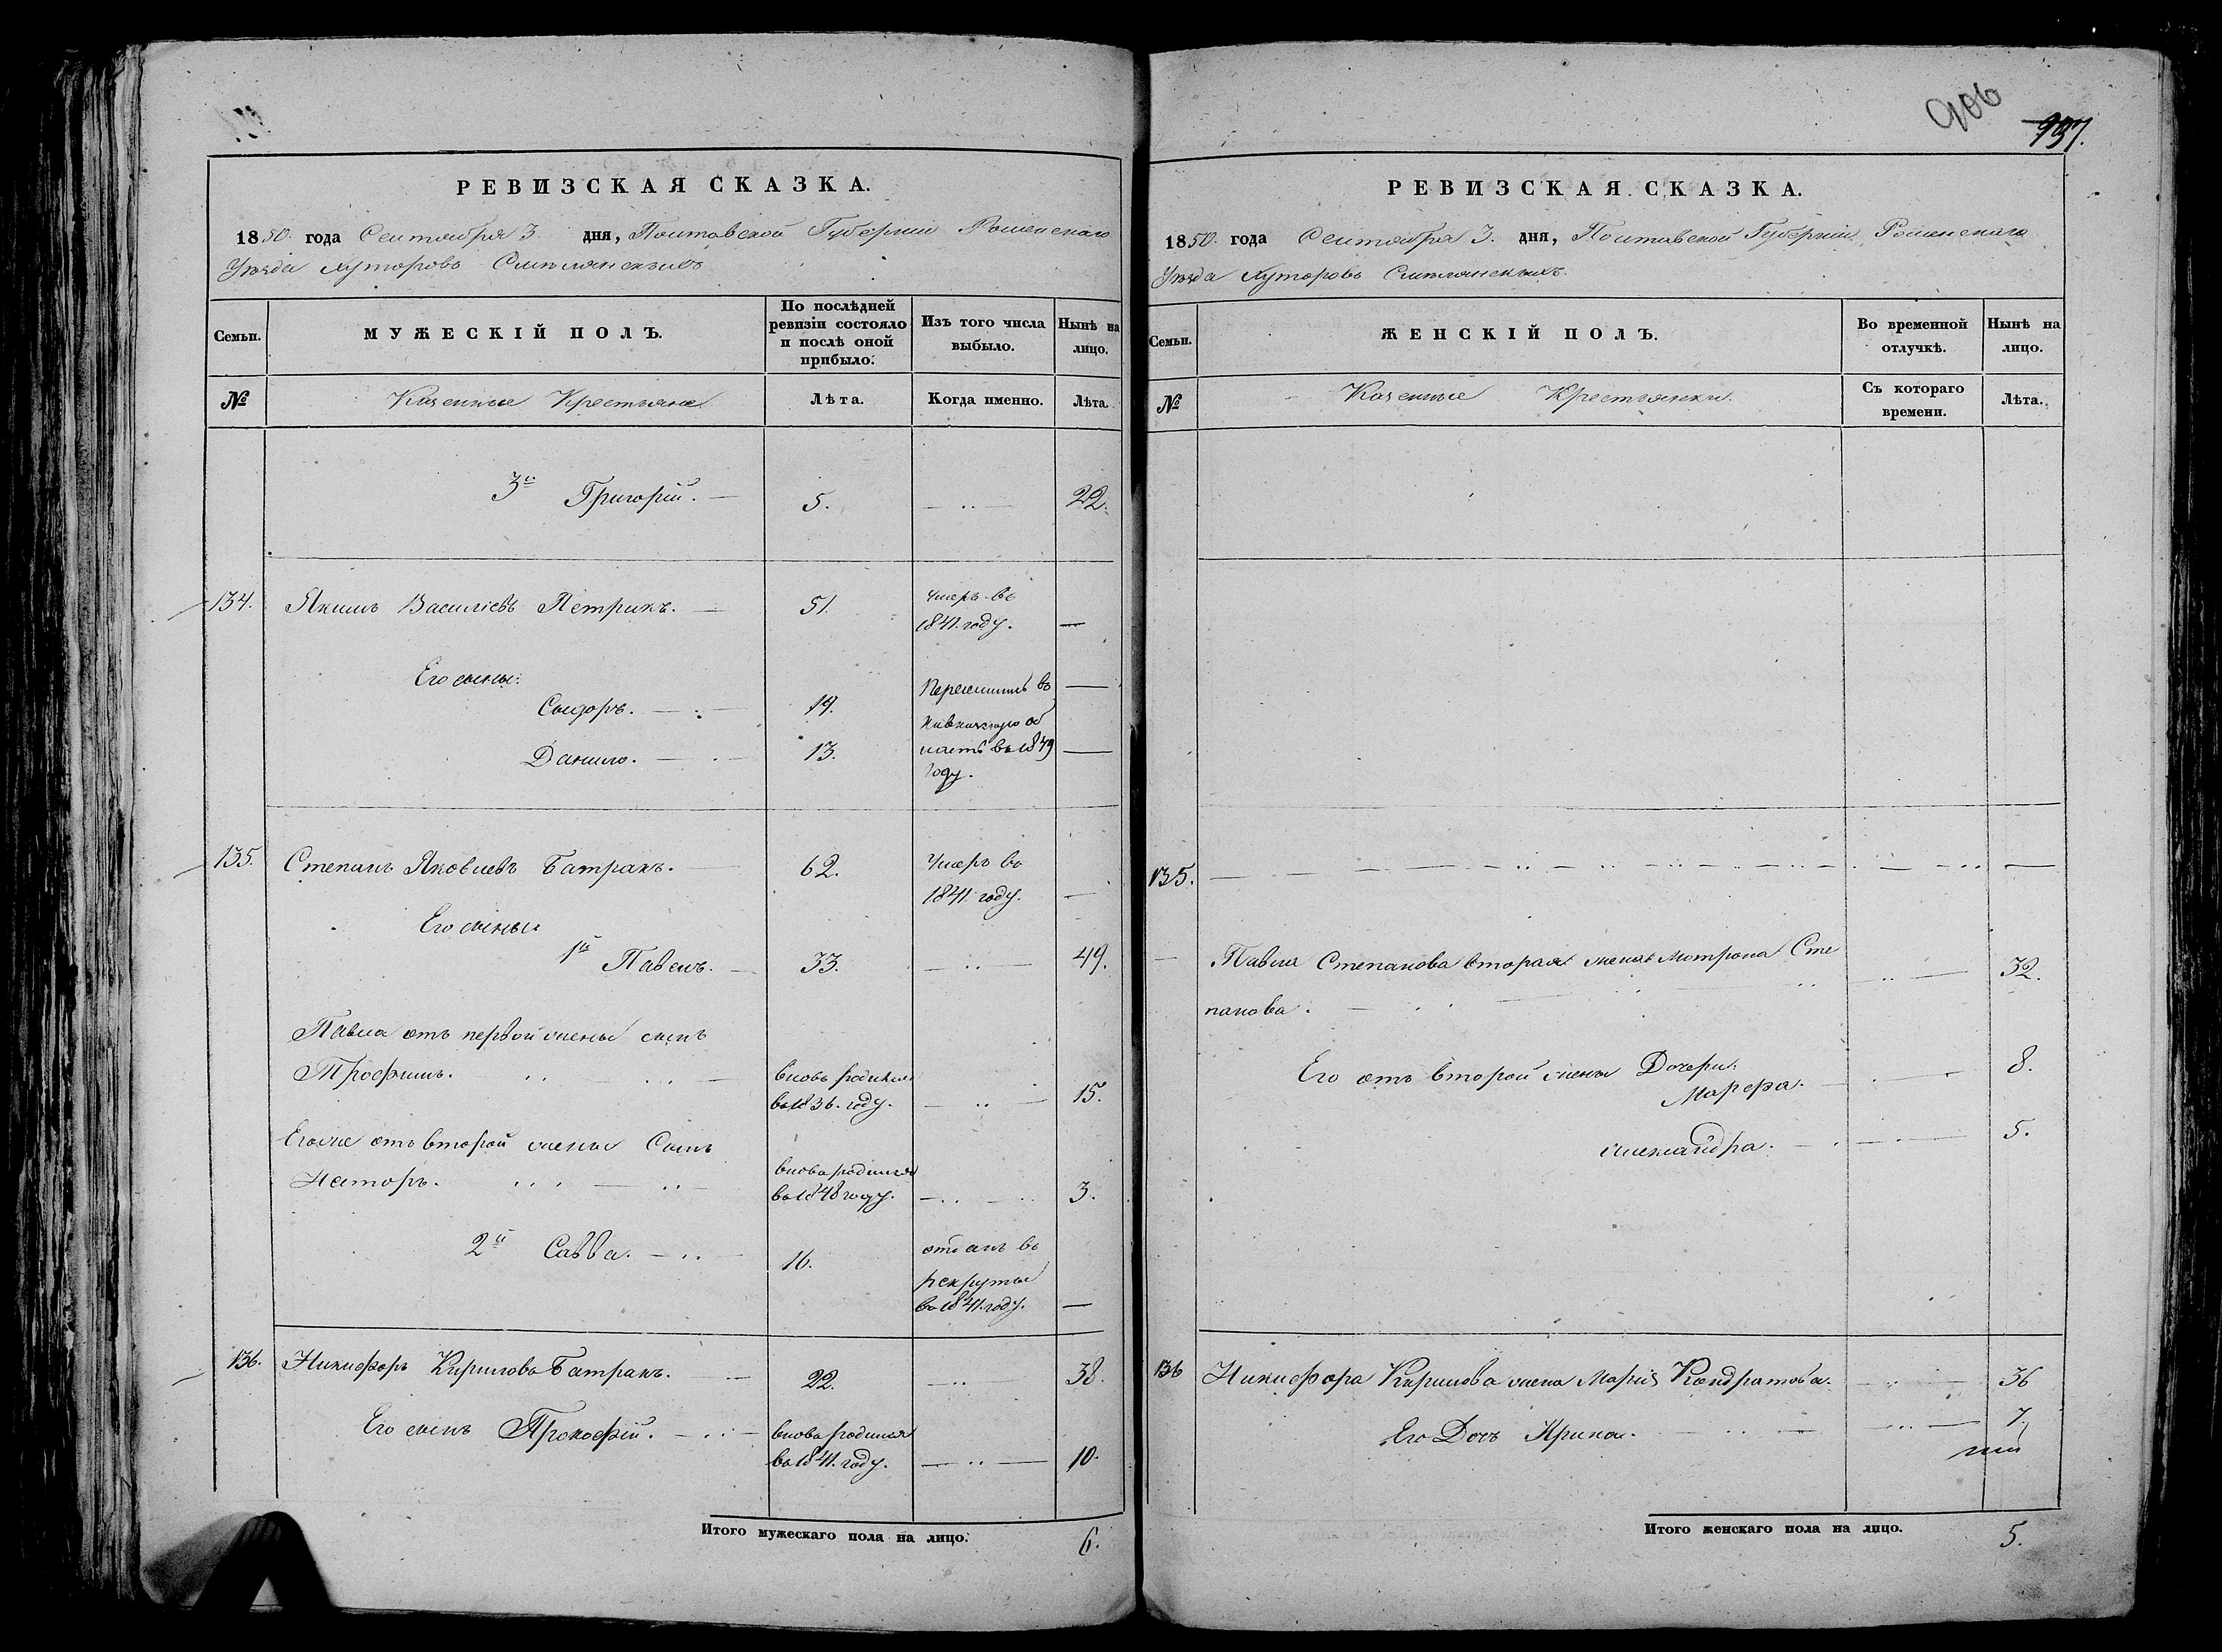 РЕВИЗСКАЯ СКАЗКА.
1850. года Сентября 3. дня, Полтавской Губерніи Роменскаго
Уѣзда Хуторовъ Смѣлянскихъ
Семьи.
МУЖЕСКІЙ ПОЛЪ.
По послѣдней ревизіи состояло и послѣ оной прибыло.
Изъ того числа выбыло.
Нынѣ на лицо.
№
Казенные Крестьяне
Лѣта.
Когда именно.
Лѣта.
3й Григорій. 5. 22.
134. Якимъ Васильевъ Петрикъ. 51. Умеръ въ
1841. году. —
Его сыны:
Сидоръ. 19. Переселились въ —
Кавказскую об
Данило. 13. ласть въ 1849 —
году.
135. Степанъ Яковлевъ Батракъ. 62. Умеръ въ
1841. году. —
Его сыны
1й Павелъ. 33. 49.
Павла отъ первой жены сынъ
Трофимъ. вновь родился
въ 1836. году. 15.
Его же отъ второй жены Сынъ
Несторъ. вновь родился
въ 1848 году. 3.
2й Савва. 16. отданъ въ
рекруты
въ 1841. году. —
136. Никифоръ Кириловъ Батракъ. 22. 38.
Его сынъ Прокофій. вновь родился
въ 1841. году. 10.
Итого мужескаго пола на лицо. 6.
906
937.
РЕВИЗСКАЯ СКАЗКА.
1850. года Сентября 3. дня, Полтавской Губерніи Роменскаго
Уѣзда Хуторовъ Смѣлянскихъ.
Семьи.
ЖЕНСКІЙ ПОЛЪ.
Во временной отлучкѣ.
Нынѣ на лицо.
№
Казенные Крестьянки.
Съ котораго времени.
Лѣта.
135.
Павла Степанова вторая жена Мотрона Сте
панова. 32.
Его отъ второй жены Дочери: 8.
Марфа.
Александра. 5.
136 Никифора Кирилова жена Марія Кондратова. 36
Его Дочь Ирина. 7.
Итого женскаго пола на лицо. 5.